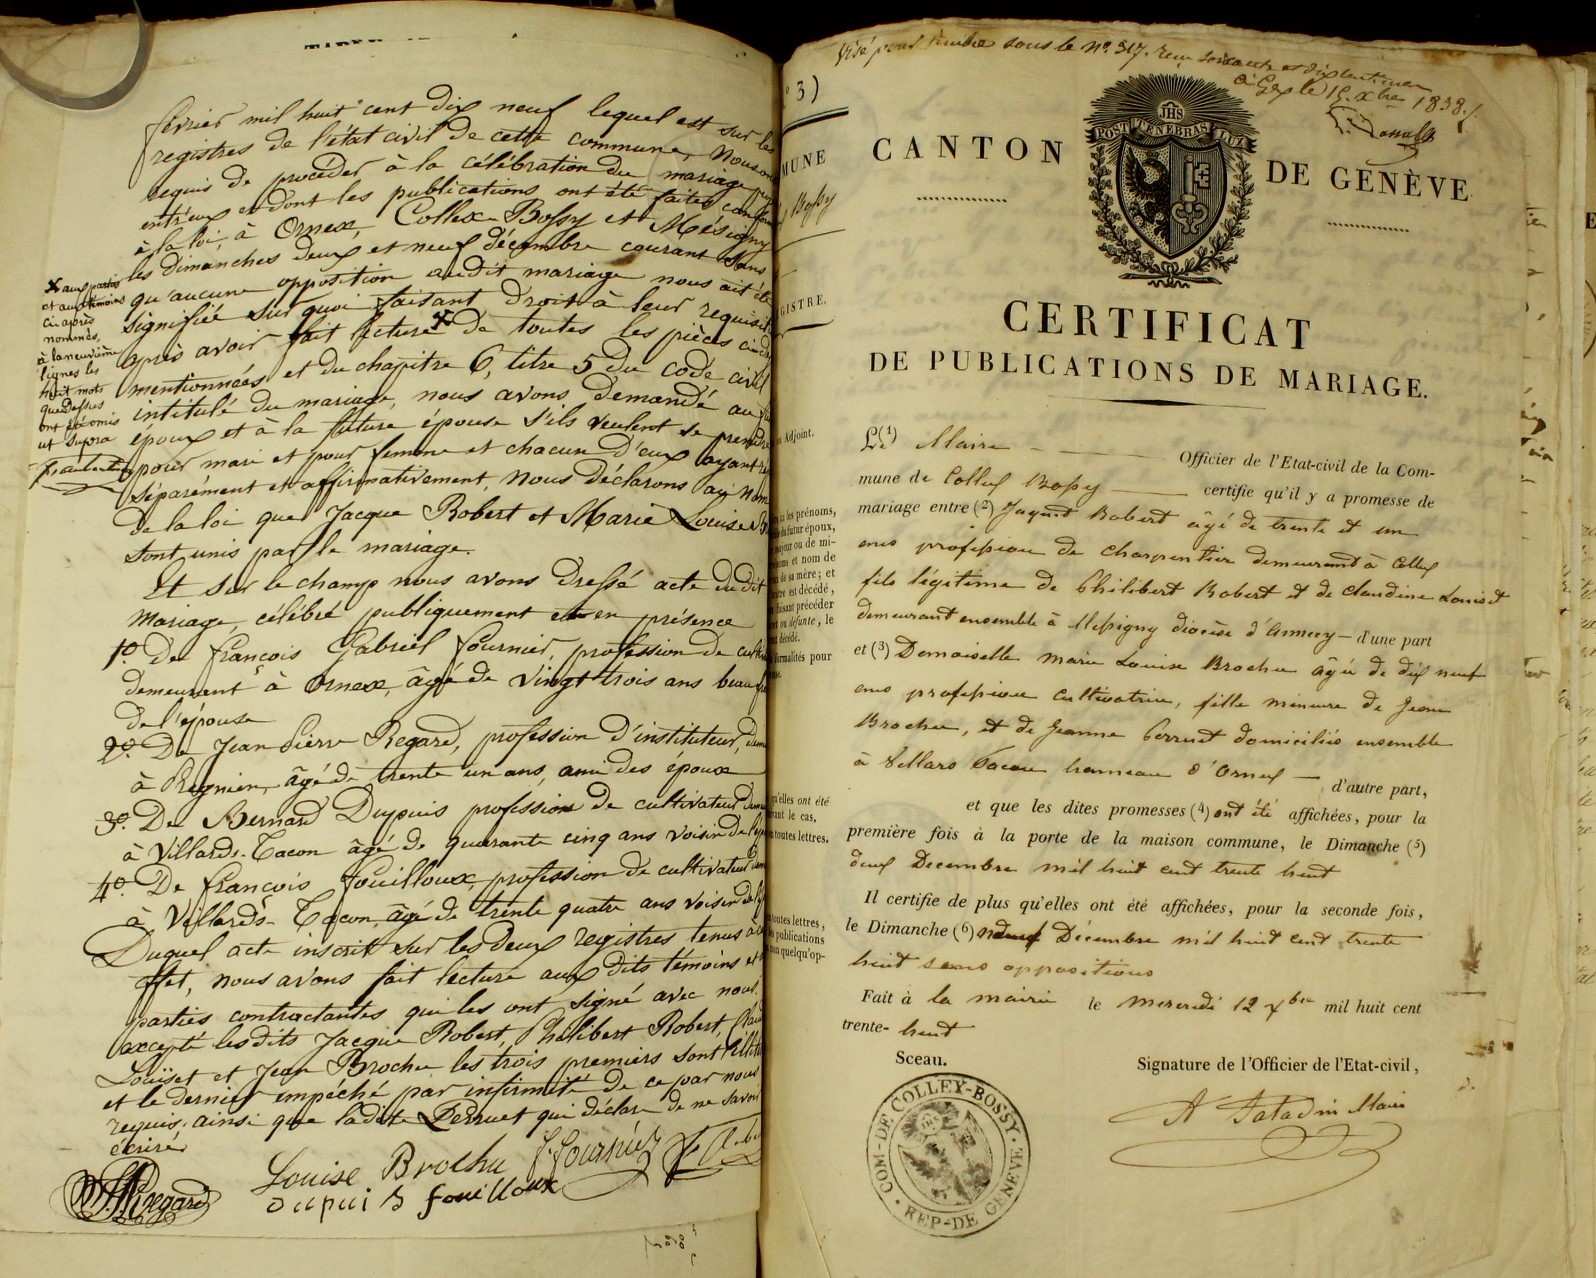 février mil huit cent dix neuf lequel est sur les
registres de l'état civil de cette commune, Nous ont
requis de procéder à la célébration du mariage
entr'eux et dont les publications ont été faites
à la loi, à Ornex, Collex-Bossy et Mésigny
les dimanches deux et neuf décembre courant sans
qu'aucune opposition audit mariage nous ait été
signifiée sur quoi faisant droit à leur
après avoir fait lecture de toutes les pièces
mentionnées et du chapitre 6, titre 5 du code civil
intitulé du mariage, nous avons demandé au
époux et à la future épouse s'ils veulent se prendre
pour mari et pour femme et chacun d'eux ayant
séparément et affirmativement, Nous déclarons au nom
de la loi que Jacque Robert et Marie Louise
sont unis par le mariage.
Et sur le champ nous avons dressé acte dudit
mariage, célébré publiquement et en présence
1º. De françois Gabriel fournier, profession de
demeurant à Ornex, âgé de vingt trois ans beau
de l'épouse
2º. De Jean Pierre Regard, profession d'instituteur,
à Regnier, âgé de trente un ans, ami des époux
3º. De Bernard Dupuis profession de cultivateur
à Villards-Tacon âgé de quarante cinq ans voisin de
4º. De françois fouilloux, profession de cultivateur
à Villards-Tacon, âgé de trente quatre ans voisin de
Duquel acte inscrit sur les deux registres tenus à
effet, nous avons fait lecture aux dits témoins et
parties contractantes qui les ont signé avec nous
excepté lesdits Jacque Robert, Philibert Robert,
Louïset et Jean Brochu les trois premiers sont
et le dernier empêché par infirmité de ce par nous
requis, ainsi que ladite Perruet qui déclare de ne savoir
écrire
Louise Brochu
Regard
dupuis fouilloux
X aux parties
et aux témoins
ci après
nommés,
à la neuvième
lignes les
huit mots
que dessus
ont été omis
ut supra
3)
MUNE
Bossy
GISTRE.
Adjoint.
les prénoms,
du futur époux,
ou de mi-
et nom de
de sa mère; et
est décédé,
faisant précéder
ou défunte, le
décédé.
formalités pour
qu'elles ont été
le cas,
toutes lettres.
toutes lettres,
publications
quelqu'op-
Visé pour timbre sous le Nº. 317. reçu soixante et dix centimes
à Gex le 15. Xbre 1838.
JHS
POST TENEBRAS LUX
CANTON DE GENÈVE
CERTIFICAT
DE PUBLICATIONS DE MARIAGE.
Le (1) Maire Officier de l'Etat-civil de la Com-
mune de Collex Bossy certifie qu'il y a promesse de
mariage entre (2) Jaques Robert âgé de trente et un
ans profession de charpentier demeurant à Collex
fils légitime de Philibert Robert et de Claudine Louiset
demeurant ensemble à Messigny diocèse d'Annecy — d'une part
et (3) Demoiselle Marie Louise Brochu âgée de dix neuf
ans profession cultivatrice, fille mineure de Jean
Brochu, et de Jeanne Perruet domiciliés ensemble
à Villars Tacon hameau d'Ornex — d'autre part,
et que les dites promesses (4) ont été affichées, pour la
première fois à la porte de la maison commune, le Dimanche (5)
deux Décembre mil huit cent trente huit
Il certifie de plus qu'elles ont été affichées, pour la seconde fois,
le Dimanche (6) neuf Décembre mil huit cent trente
huit sans oppositions
Fait à la mairie le mercredi 12 Xbre mil huit cent
trente- huit
Sceau.
Signature de l'Officier de l'Etat-civil,
Maire
COM-DE COLLEX-BOSSY.
REP-DE GENEVE